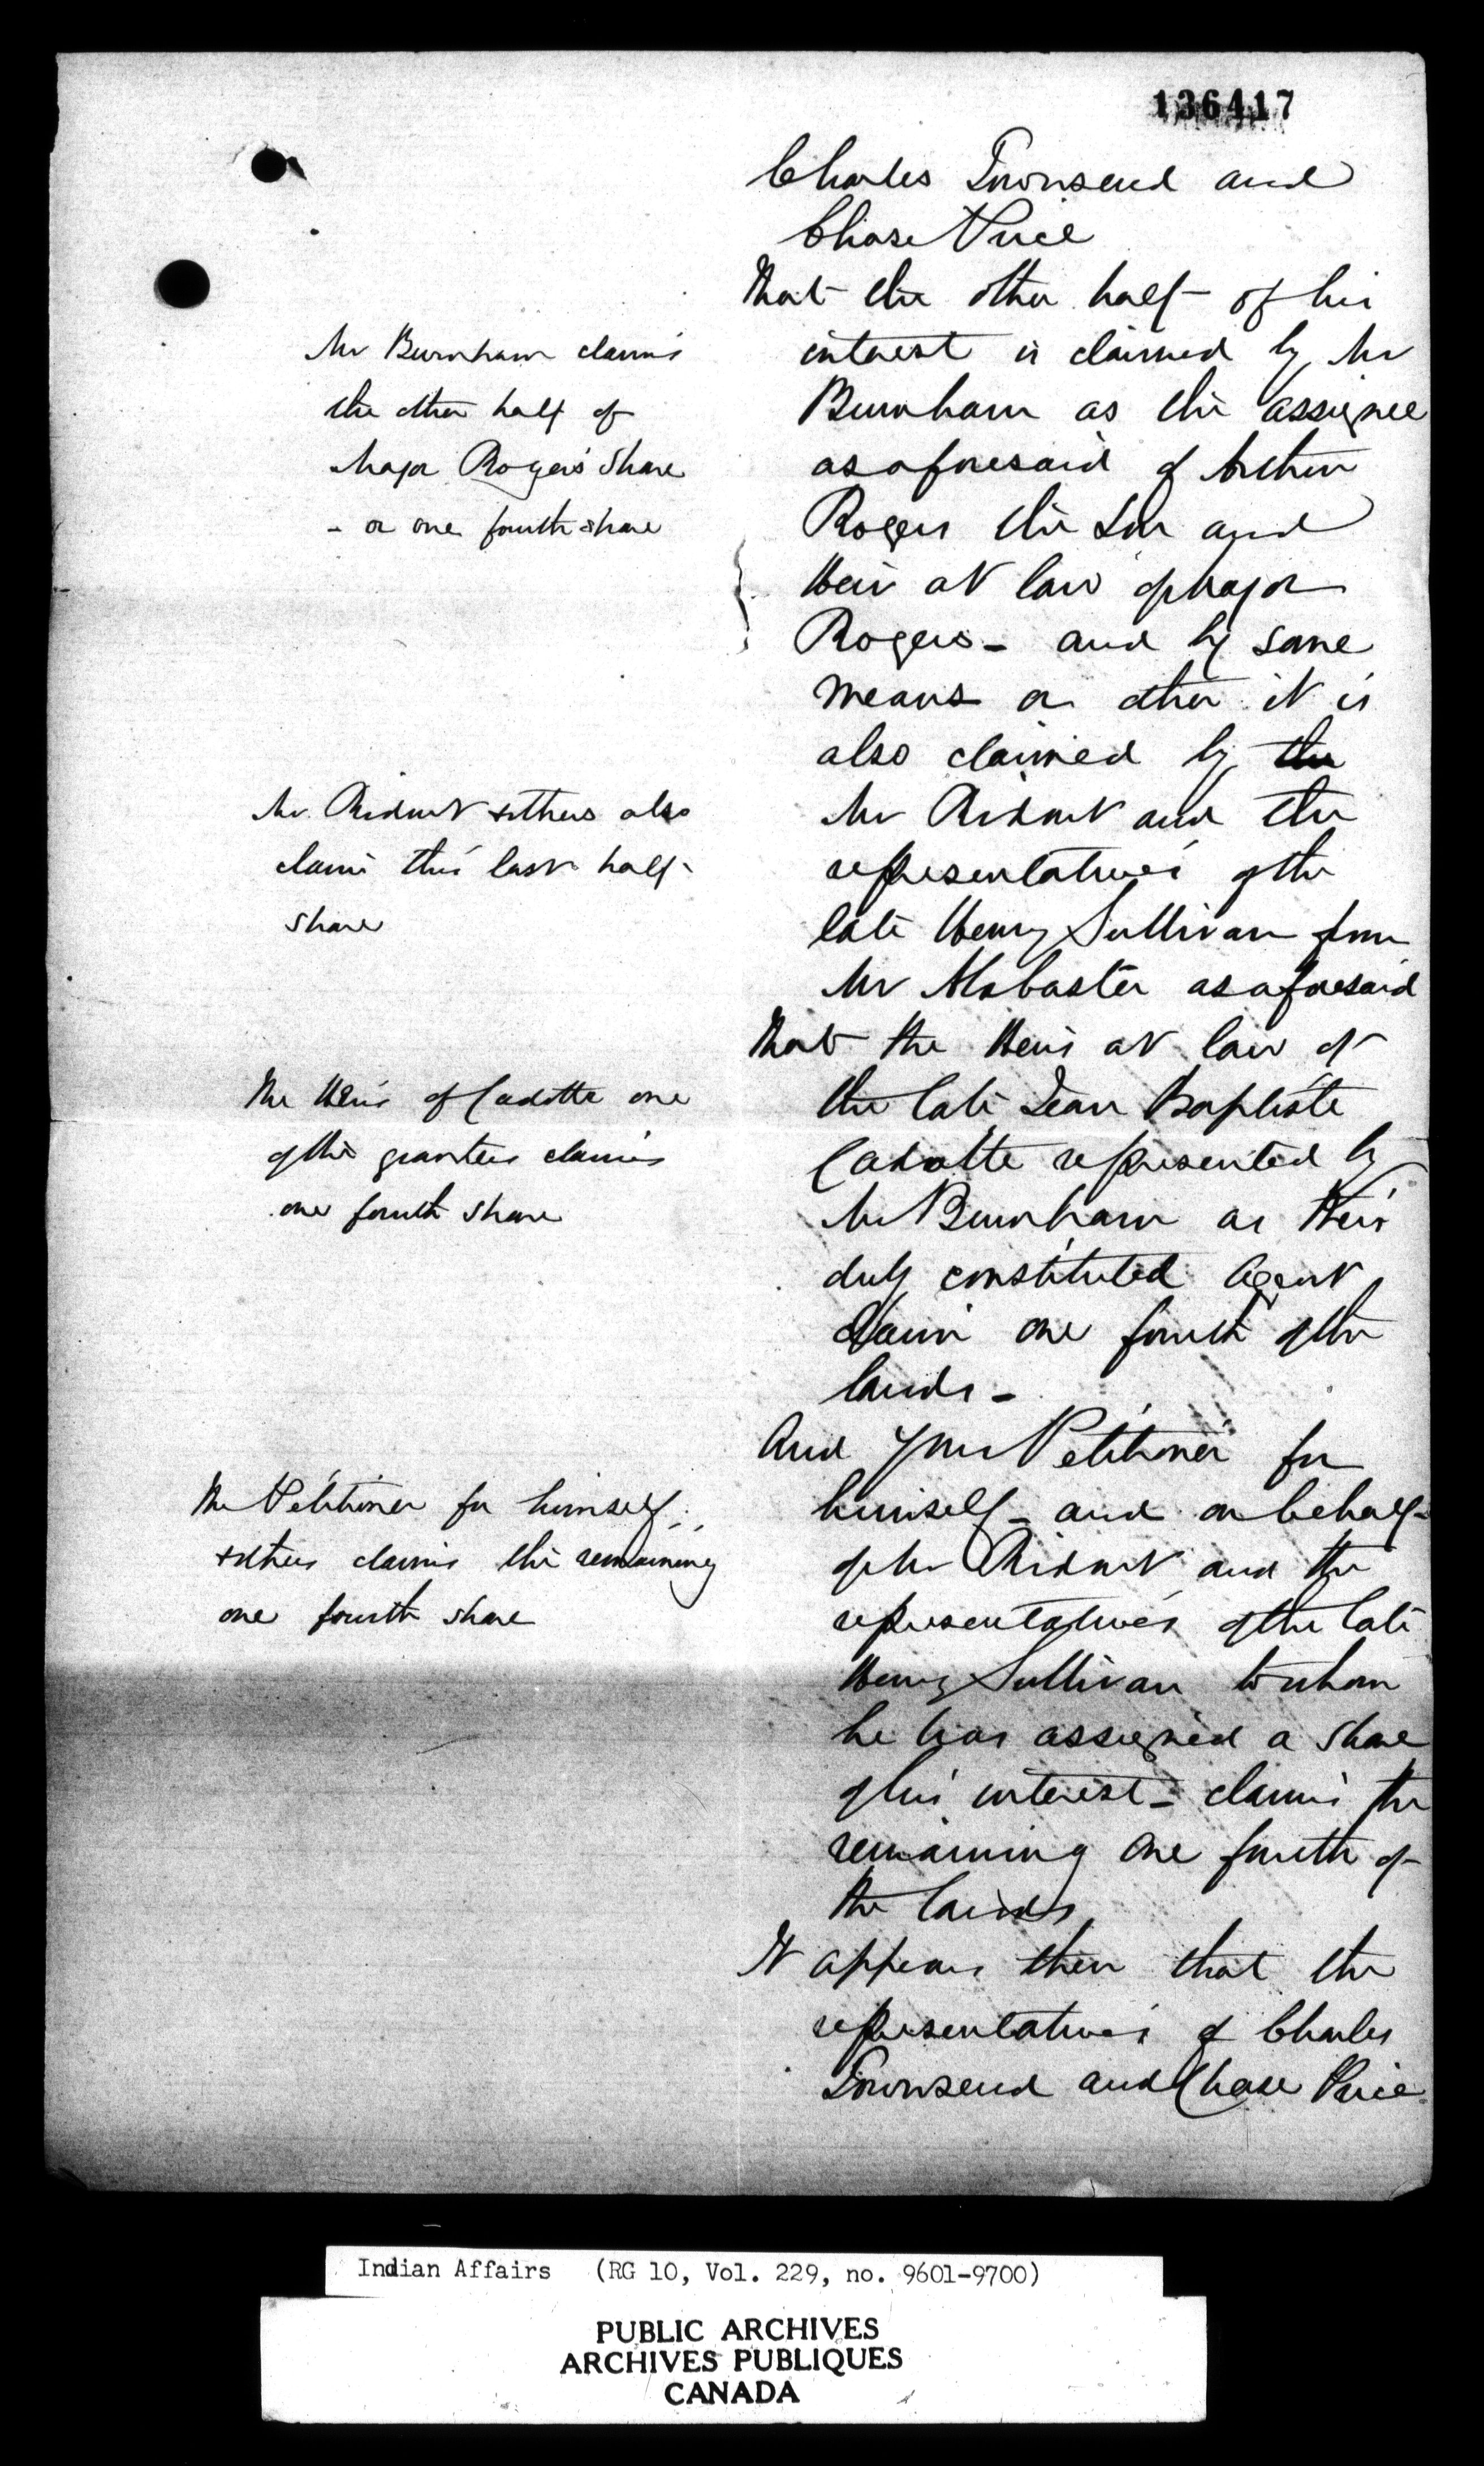 136417
Charles Townsend and
Chase Price
That the other half of his
interest is claimed by Mr
Burnham as the assignee
as aforesaid of Arthur
Rogers the Son and
Heir at law of Major
Rogers - and by some
means or other it is
also claimed by the
Mr Ridout and the
representatives of the
late Henry Sullivan from
Mr Alabaster as aforesaid
That the Heirs at law of
the late Jean Baptiste
Cadotte represented by
Mr Burnham as their
duly constituted Agent
claim one fourth of the
lands -
And your Petitioner for
himself - and on behalf
of Mr Ridout and the
representatives of the late
Henry Sullivan to whom
he has assigned a share
of his interest - claims the
remaining one fourth of
the lands
It appears then that the
representatives of Charles
Townsend and Chase Price
Mr Burnham claims
the other half of
Major Rogers' Share
- or one fourth share
Mr. Ridout & others also
claim this last half
share
The Heirs of Cadotte one
of the grantees claims
one fourth share
The Petitioner for himself
& others claims the remaining
one fourth share
Indian Affairs (RG 10, Vol. 229, no. 9601-9700)
PUBLIC ARCHIVES
ARCHIVES PUBLIQUES
CANADA